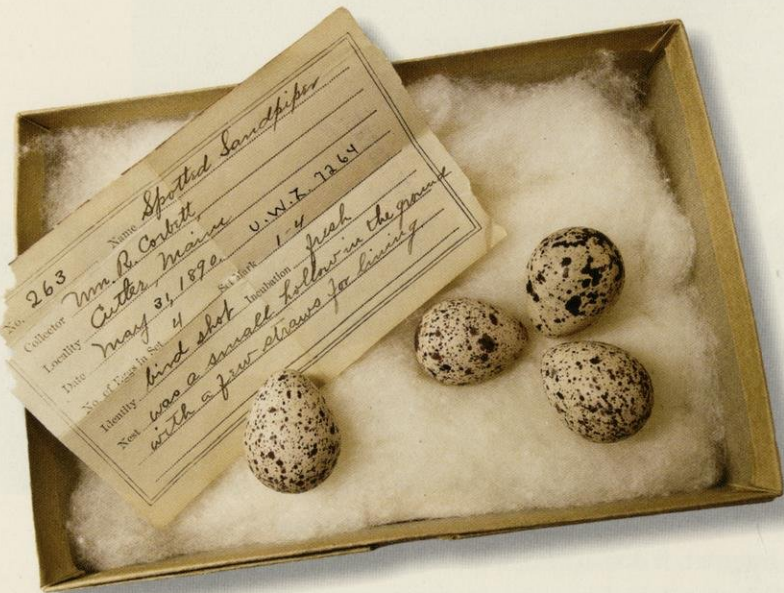 No. 263 Name Spotted Sandpiper
Collector Wm. R. Corbitt
Locality Cutler, Maine
Date May 31, 1890. U.W.Z. 7264
No. of Eggs in Set 4 Set Mark 1-4
Identity bird shot Incubation fresh
Nest was a small hollow in the ground
with a few straws for lining